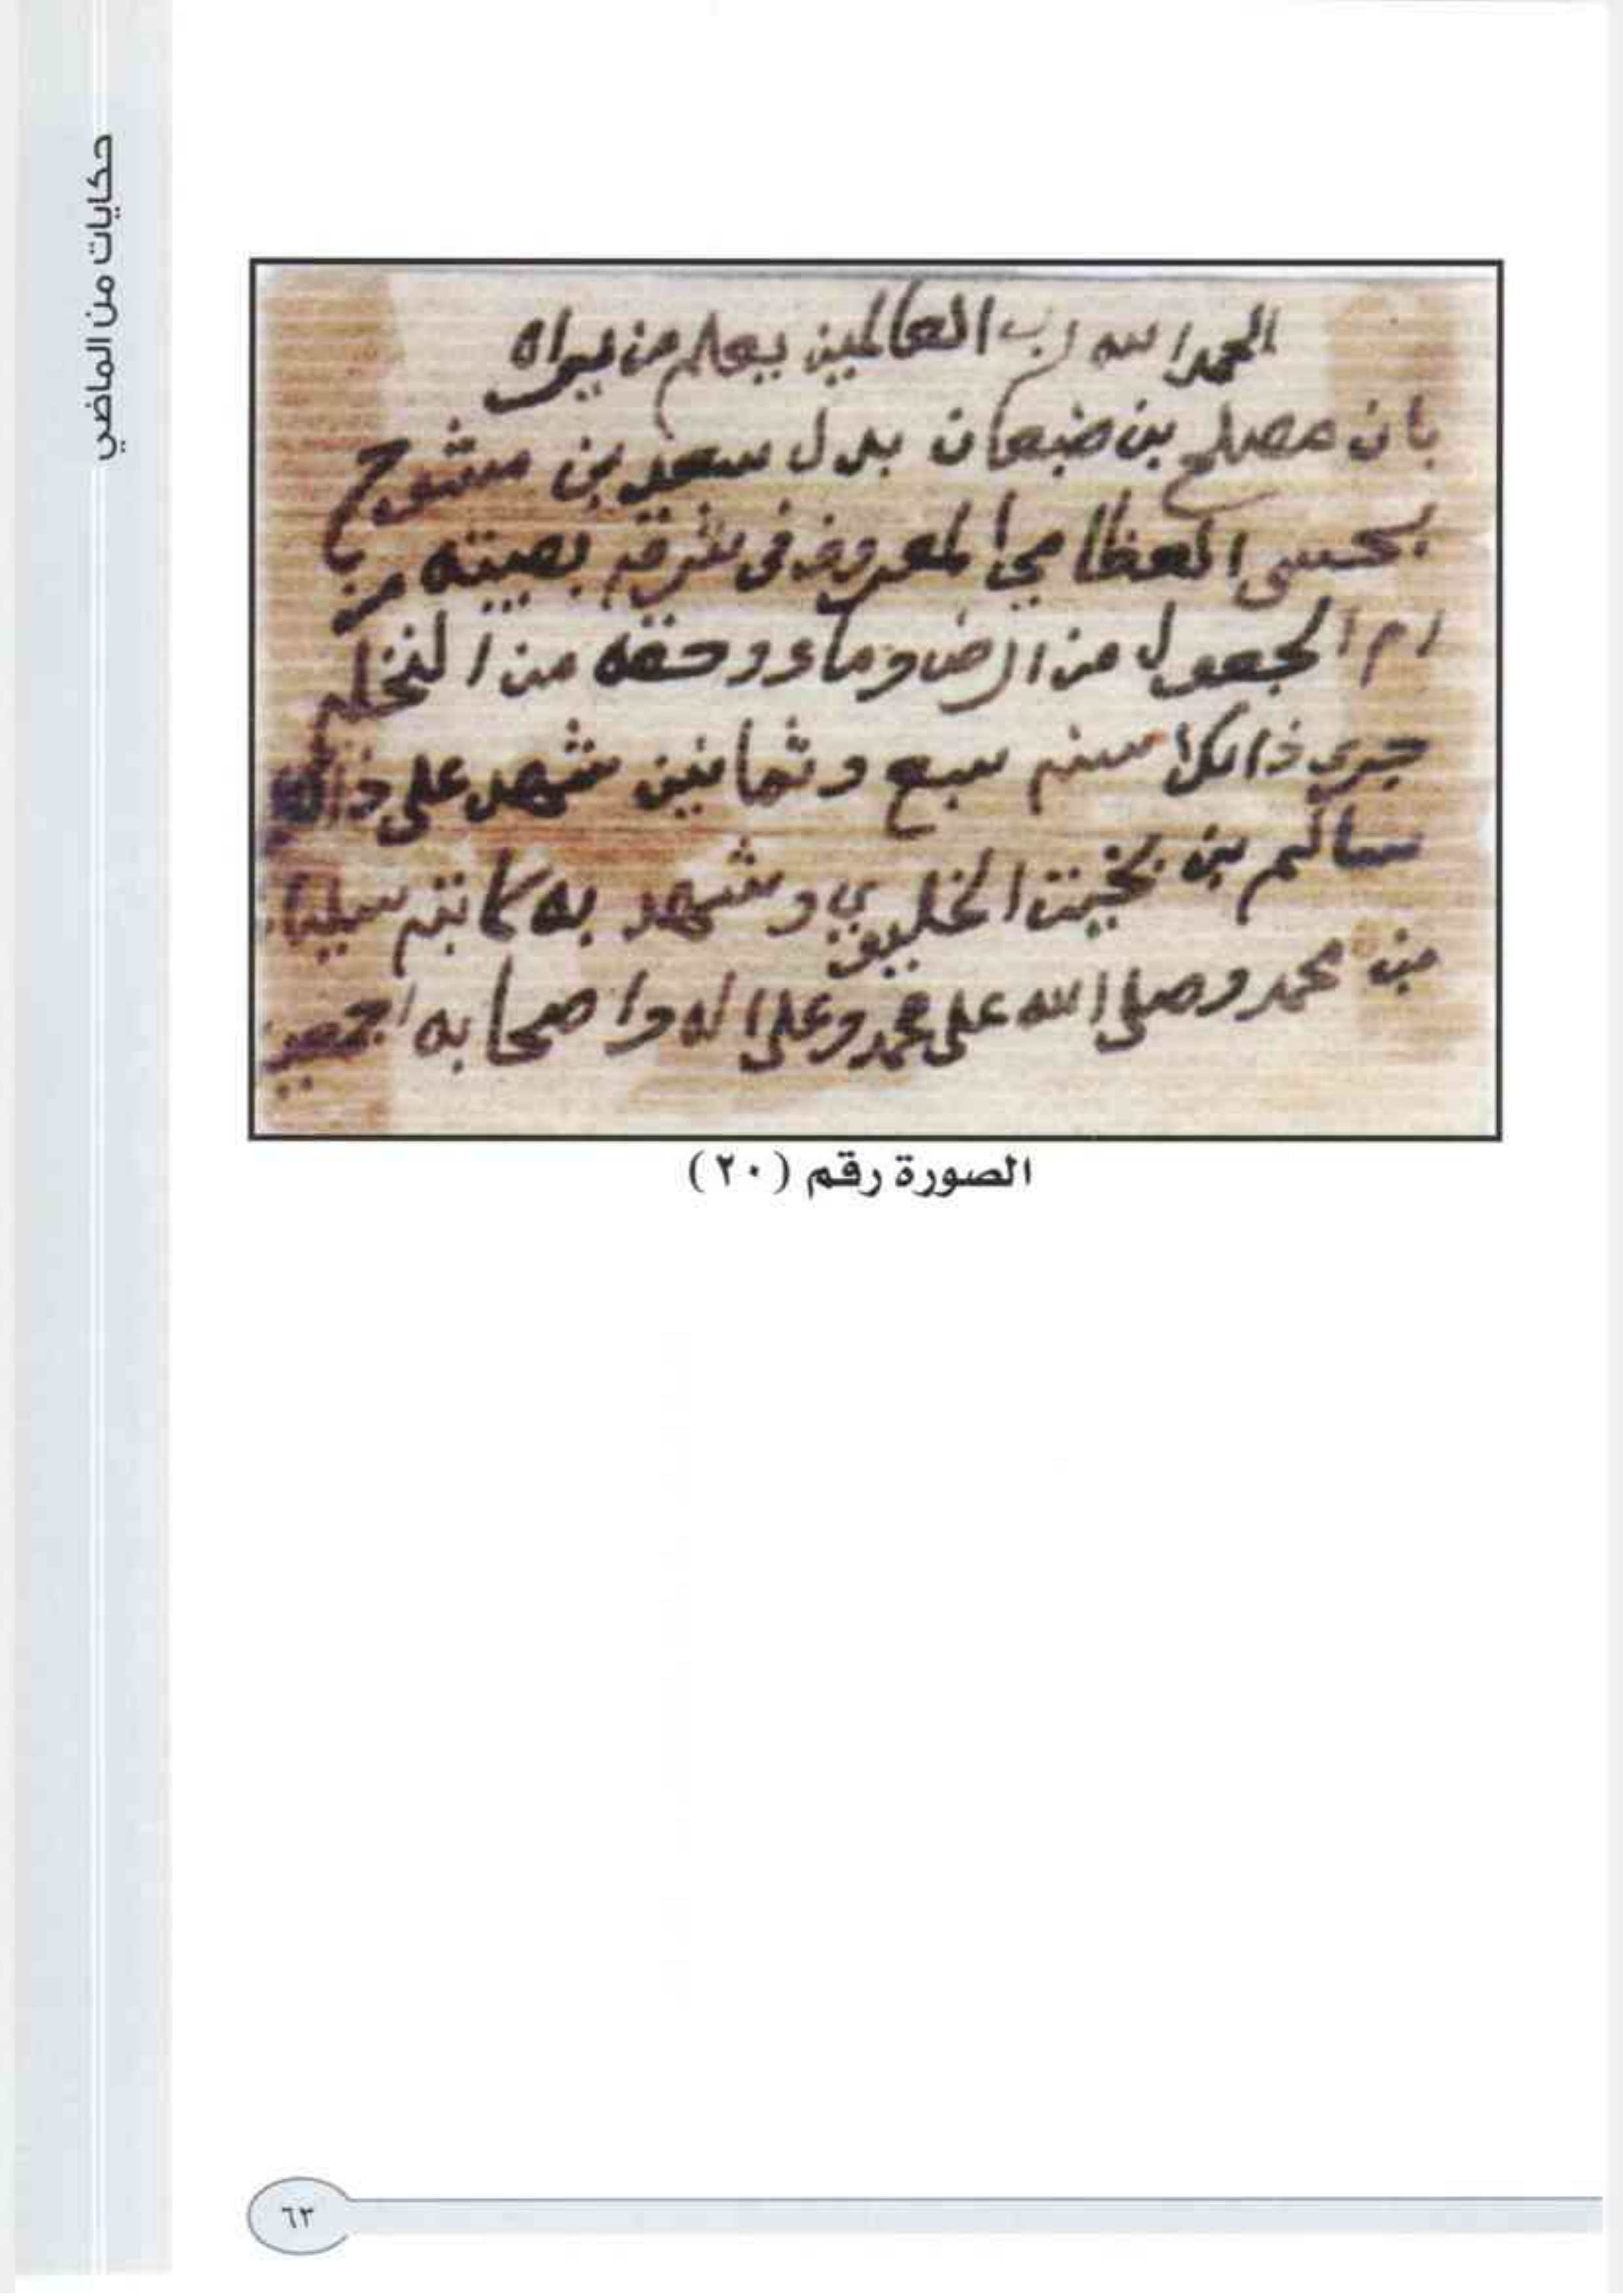 حكايات من الماضي
الحمد الله رب العالمين يعلم من يراه
بان مصلح بن ضبعان بدل سعد بن مشوح
العظامي المعروف في شرقيه بصيته من
ام الجعول من ارض وماء وحقه من النخله
جرى ذالك سنه سبع وثمانين شهد على ذالك
سالم بن بخيت الخليوي وشهد به كاتبه سليمان
بن محمد وصلى الله على محمد وعلى اله واصحابه اجمعين
الصورة رقم (٢٠)
٦٣